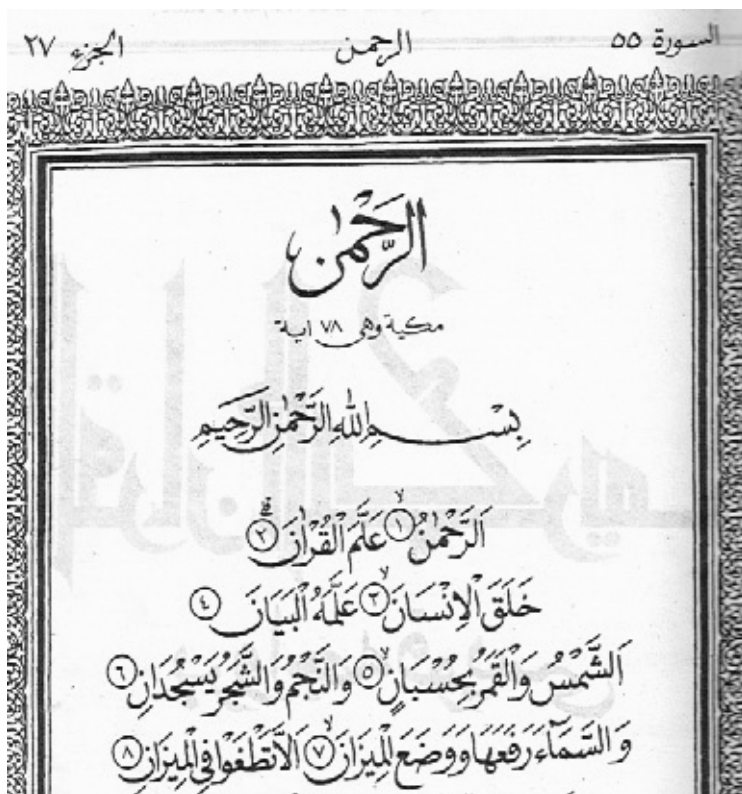 السورة ٥٥ الرحمن الجزء ٢٧
الرَّحْمٰن
مكية وهى ٧٨ اية
بِسْمِ اللّٰهِ الرَّحْمٰنِ الرَّحِيمِ
اَلرَّحْمٰنُ ﴿١﴾ عَلَّمَ الْقُرْاٰنَ ﴿٢﴾
خَلَقَ الْاِنْسَانَ ﴿٣﴾ عَلَّمَهُ الْبَيَانَ ﴿٤﴾
اَلشَّمْسُ وَالْقَمَرُ بِحُسْبَانٍ ﴿٥﴾ وَالنَّجْمُ وَالشَّجَرُ يَسْجُدَانِ ﴿٦﴾
وَالسَّمَآءَ رَفَعَهَا وَوَضَعَ الْمِيزَانَ ﴿٧﴾ اَلَّا تَطْغَوْا فِي الْمِيزَانِ ﴿٨﴾